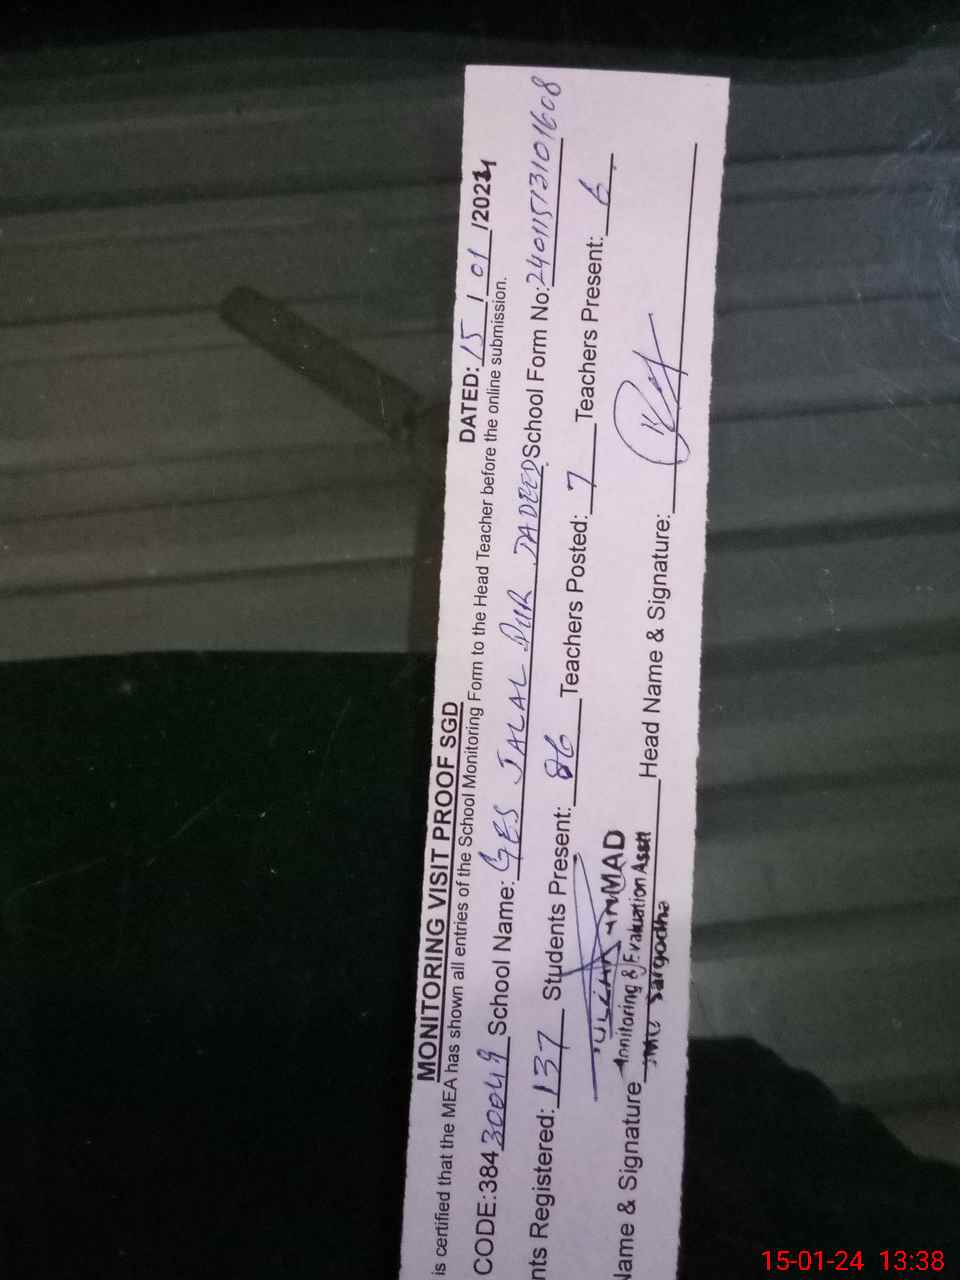 MONITORING VISIT PROOF SGD
DATED: 15 / 01 /2024
is certified that the MEA has shown all entries of the School Monitoring Form to the Head Teacher before the online submission.
CODE:384 30049 School Name: GES JALAL PUR JADEED School Form No: 24011513101608
nts Registered: 137 Students Present: 86 Teachers Posted: 7 Teachers Present: 6
MMAD
Monitoring & Evaluation Asstt
Name & Signature Sargodha Head Name & Signature:
15-01-24 13:38